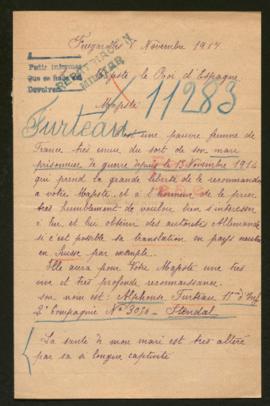 Novembre 1917
A
Pedir informes
Que se haga
Devolver
REPATRIACION
MILITAR
Majesté le Roi d'Espagne
Majesté
11283
Furteau
est une pauvre femme de
France très émue du sort de son mari
prisonnier de guerre depuis le 13 Novembre 1914
qui prend la grande liberté de le recommander
à votre Majesté, et a l'honneur de la prier
très humblement de vouloir bien s'intéresser
à lui, et lui obtenir des autorités Allemandes
si c'est possible sa translation en pays neutre
en Suisse par exemple.
Elle aura pour Votre Majesté une très
vive et très profonde reconnaissance.
son nom est: Alphonse Furteau 11e d'Inf
2e Compagnie No 3090 - Stendal
La santé de mon mari est très altérée
par sa si longue captivité